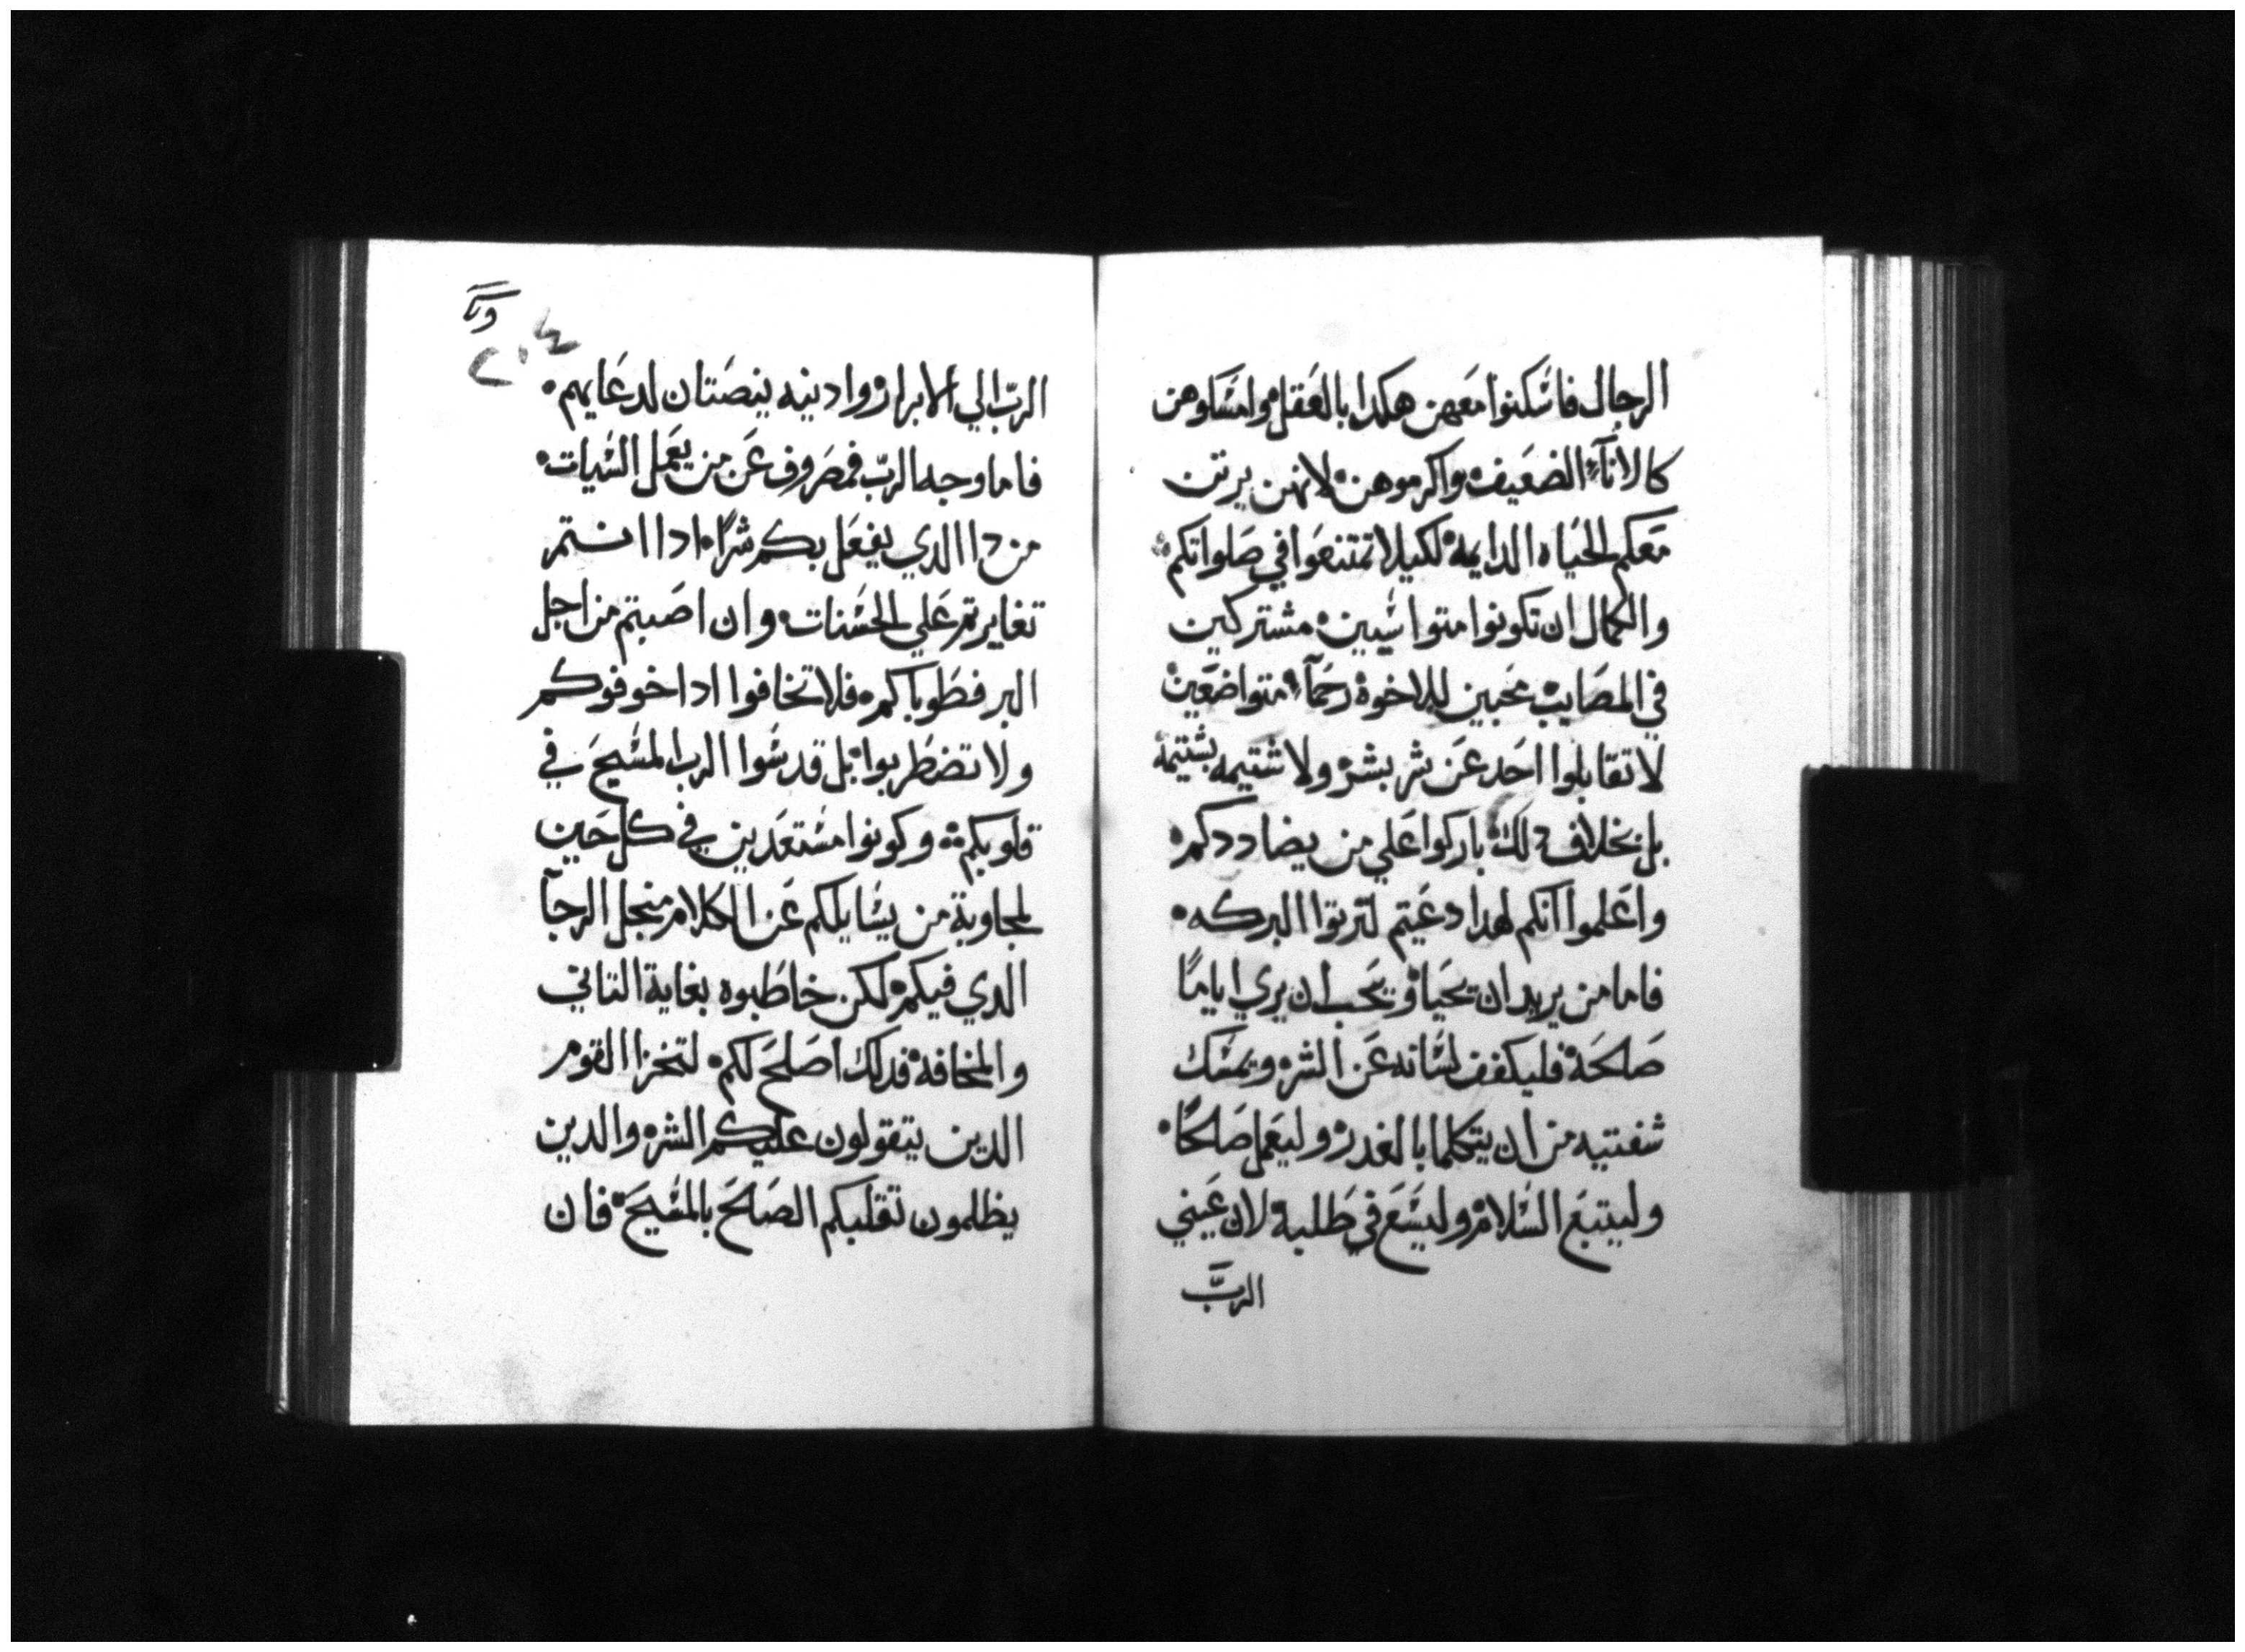 الرجال فاسكنوا معهن هكدا بالعقل وامسكوهن
كالانآء الضعيف واكرموهن لانهن يرتن
معكم الحياه الدايمه لكيلا تمتنعوا في صلواتكم
والكمال ان تكونوا متواسيين مشتركين
في المصايب محبين للاخوة رحمآء متواضعين
لا تقابلوا احد عن شر بشر ولا شتيمه بشتيمة
بل بخلاف دلك باركوا علي من يضاددكم
واعلموا انكم لهدا دعيتم لترتوا البركه
فاما من يريد ان يحيا ويحب ان يري اياما
صلحة فليكفف لسانه عن الشر ويمسك
شفتيه من ان يتكلما بالغدر وليعمل صلحًا
وليتبع السلام وليسع في طلبه لان عيني
الربّ
٢٠٤
الربّ الي الابرار وادنيه ينصتان لدعايهم
فاما وجه الربّ فمصروف عن من يعمل السيات
من دا الدي يفعل بكم شرًا ادا انتم
تغايرتم علي الحسنات وان اصبتم من اجل
البر فطوباكم فلا تخافوا ادا خوفوكم
ولا تضطربوا بل قدسوا الرب المسيح في
قلوبكم وكونوا مستعدين في كل حين
لمجاوبة من يسايلكم عن الكلام منجل الرجآ
الدي فيكم لكن خاطبوه بغاية التاني
والمخافه فدلك اصلح لكم لتخزا القوم
الدين يتقولون عليكم الشر والدين
يظلمون تقلبكم الصالح بالمسيح فان